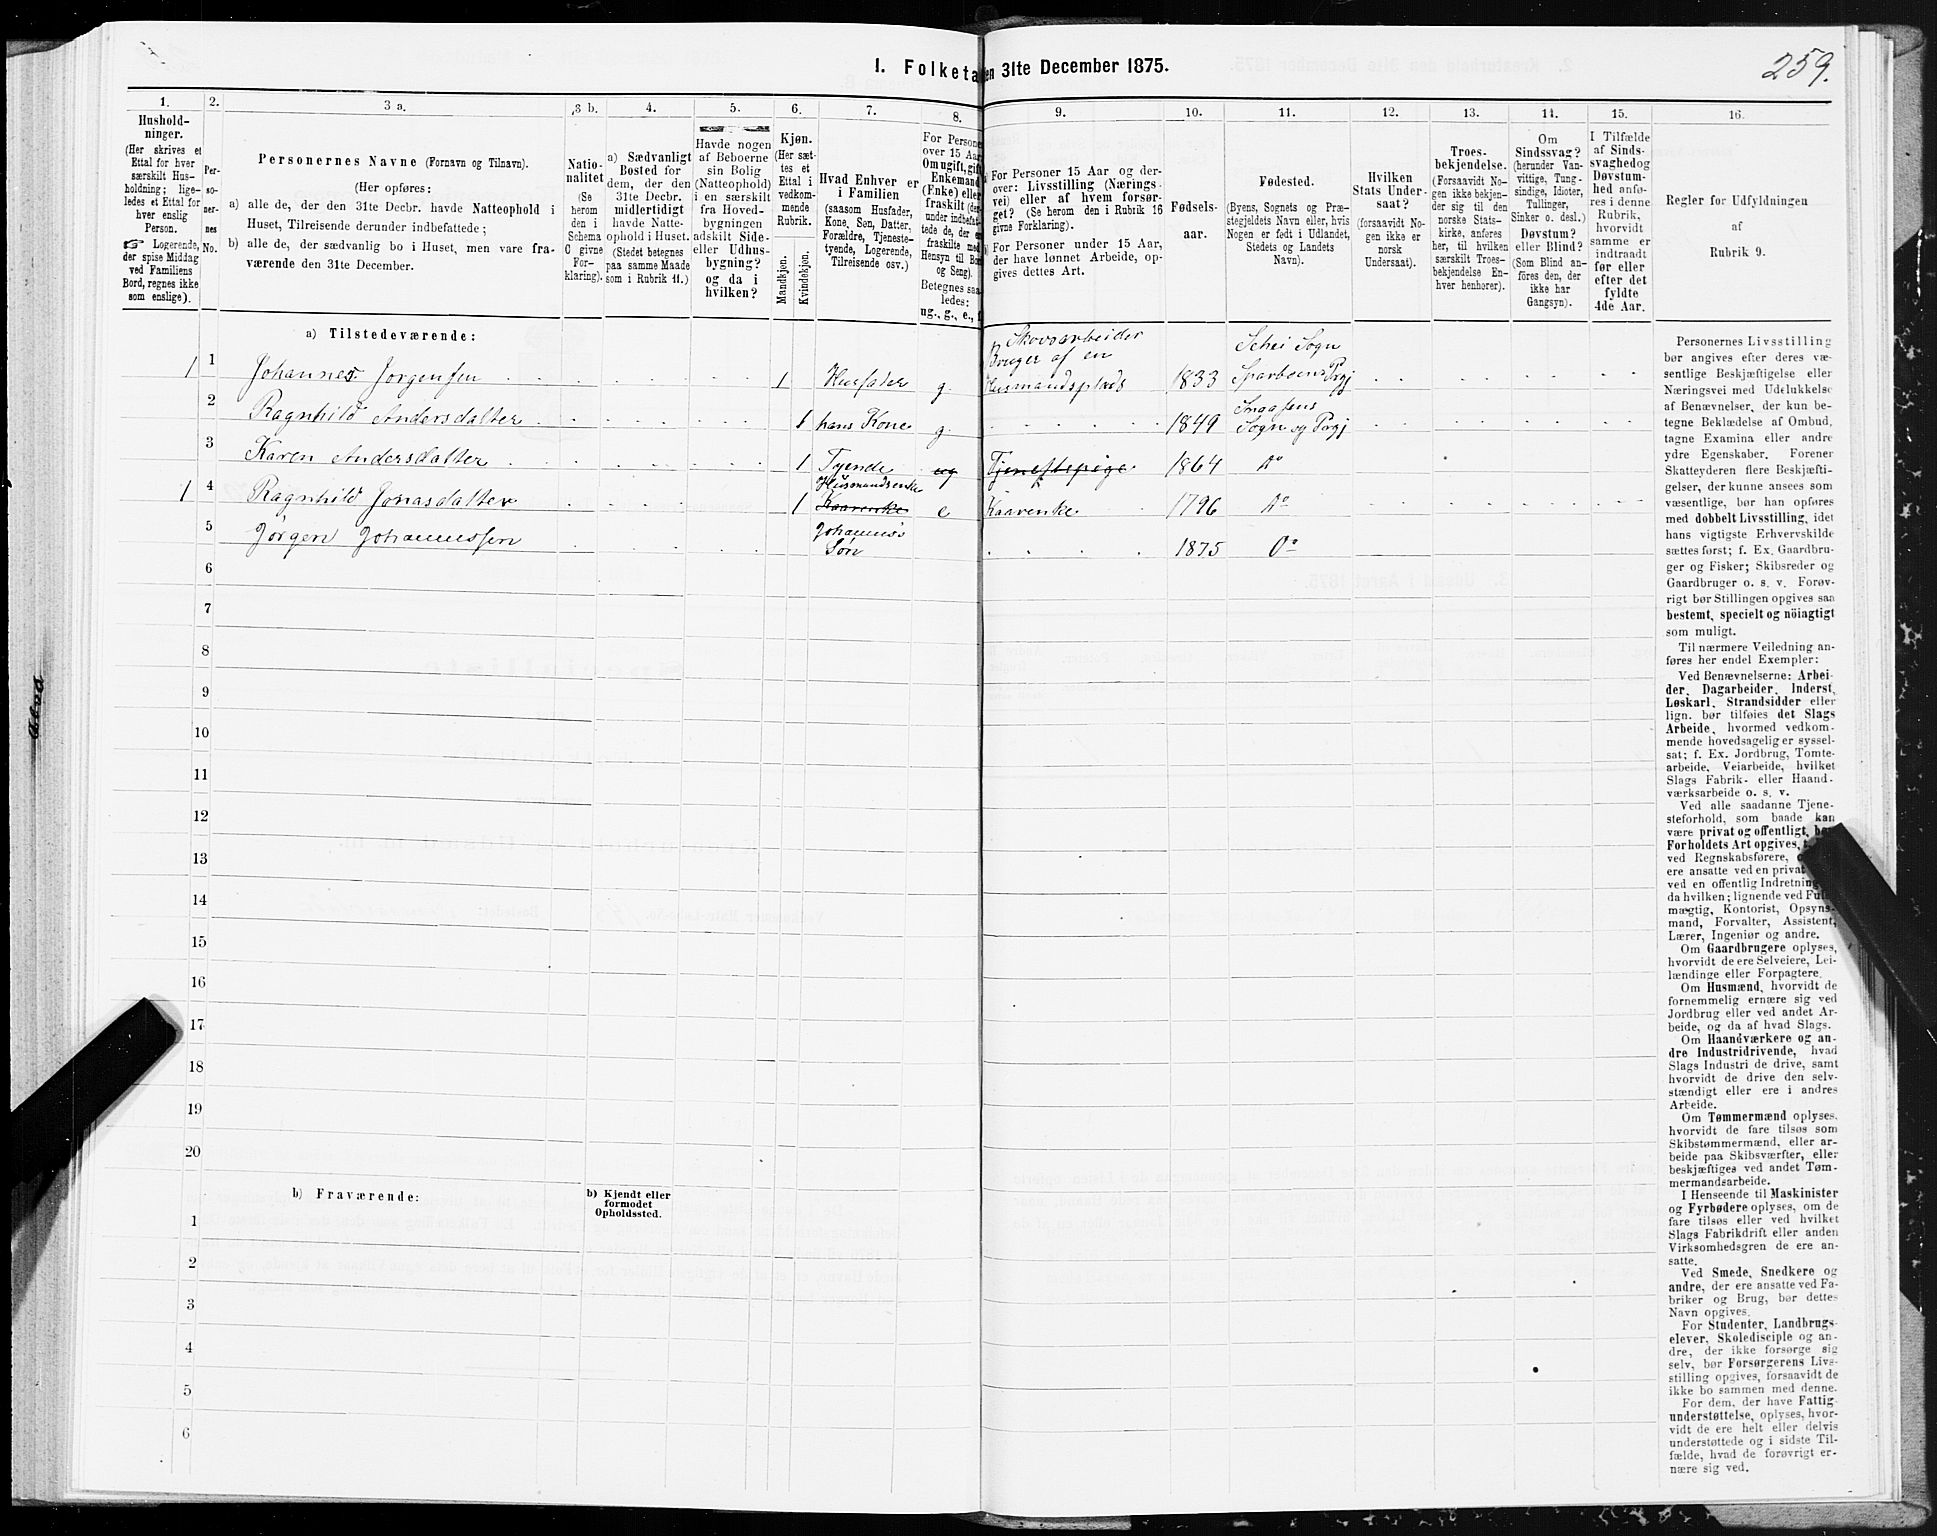 259.
I. Folketa
en 31te December 1875.
1.
2.
3 a.
3 b.
4.
5.
6.
7.
8.
9.
10.
11.
12.
13.
14.
15.
16.
Hushold-
ninger.
(Her skrives et
Ettal for hver
særskilt Hus-
holdning; lige-
ledes et Ettal for
hver enslig
Person.
☞ Logerende,
der spise Middag
ved Familiens
Bord, regnes ikke
som enslige).
Per-
so-
ner-
nes
No.
Personernes Navne (Fornavn og Tilnavn).
(Her opføres:
a) alle de, der den 31te Decbr. havde Natteophold i
Huset, Tilreisende derunder indbefattede;
b) alle de, der sædvanlig bo i Huset, men vare fra-
værende den 31te December.
Natio-
nalitet
(Se
herom
den i
Schema
C givne
For-
klaring).
a) Sædvanligt
Bosted for
dem, der den
31te Decbr.
midlertidigt
havde Natte-
ophold i Huset.
(Stedet betegnes
paa samme Maade
som i Rubrik 11.)
Havde nogen
af Beboerne
sin Bolig
(Natteophold)
i en særskilt
fra Hoved-
bygningen
adskilt Side-
eller Udhus-
bygning?
og da i
hvilken?
Kjøn.
(Her sæt-
tes et
Ettal i
vedkom-
mende
Rubrik.
Mandkjøn.
Kvindekjøn.
Hvad Enhver er
i Familien
(saasom Husfader,
Kone, Søn, Datter,
Forældre, Tjeneste-
tyende, Logerende,
Tilreisende osv.)
For Persone
over 15 Aar
Om ugift, gift
Enkemand
(Enke) eller
fraskilt (der-
under indbefat-
tede de, der er
fraskilte med
Hensyn til Bo
og Seng).
Betegnes saa-
ledes:
ug., g., e., f
a) For Personer 15 Aar og der-
over: Livsstilling (Nærings-
vei) eller af hvem forsør-
get? (Se herom den i Rubrik 16
givne Forklaring).
b) For Personer under 15 Aar,
der have lønnet Arbeide, op-
gives dettes Art.
Fødsels-
aar.
Fødested.
(Byens, Sognets og Præ-
stegjeldets Navn eller, hvis
Nogen er født i Udlandet,
Stedets og Landets
Navn).
Hvilken
Stats Under-
saat?
(forsaavidt No-
gen ikke er
norsk
Undersaat).
Troes-
bekjendelse.
(Forsaavidt No-
gen ikke bekjen-
der sig til den
norske Stats-
kirke, anføres
her, til hvilken
særskilt Troes-
bekjendelse En-
hver henhører).
Om
Sindssvag?
(herunder Van-
vittige, Tung-
sindige, Idioter,
Tullinger,
Sinker o. desl.)
Døvstum?
eller Blind?
(Som Blind an-
føres den, der
ikke har
Gangsyn).
I Tilfælde
af Sinds-
svaghed og
Døvstum-
hed anfø-
res i denne
Rubrik,
hvorvidt
samme er
indtraadt
før eller
efter det
fyldte
4de Aar.
Regler for Udfyldningen
af
Rubrik 9.
a) Tilstedeværende:
1 1 Johannes Jorgensen 1 Husfader g. Skovsarbeider Bruger af en Husmandsplads 1833 Schei Sogn Sparboens Prgj
2 Ragnhild Andersdatter 1 hans Kone g. 1849 Snaasens Sogn og Prgj
3 Karen Andersdatter 1 Tyende ug Tjenestepige 1864 do
1 4 Ragnhild Jonasdatter 1 Husmandsenke Kaarenke e Kaarenke 1796 do
5 Jørgen Johannessen Johannes's Søn 1875 do
6
7
8
9
10
11
12
13
14
15
16
17
18
19
20
b) Fraværende:
b) Kjendt eller
formodet
Opholdssted.
1
2
3
4
5
6
Personernes Livsstilling
bør angives efter deres væ-
sentlige Beskjæftigelse eller
Næringsvei med Udelukkelse
af Benævnelser, der kun be-
tegne Beklædelse af Ombud,
tagne Examina eller andre
ydre Egenskaber. Forener
Skatteyderen flere Beskjæfti-
gelser, der kunne ansees som
væsentlige, bør han opføres
med dobbelt Livsstilling, idet
hans vigtigste Erhvervskilde
sættes først; f. Ex. Gaardbru-
ger og Fisker; Skibsreder og
Gaardbruger o. s. v. Forøv-
rigt bør Stillingen opgives saa
bestemt, specielt og nöiagtigt
som muligt.
Til nærmere Veiledning an-
føres her endel Exempler:
Ved Benævnelserne: Arbei-
der, Dagarbeider, Inderst,
Løskarl, Strandsidder eller
lign. bør tilføies det Slags
Arbeide, hvormed vedkom-
mende hovedsagelig er syssel-
sat; f. Ex. Jordbrug, Tomte-
arbeide, Veiarbeide, hvilket
Slags Fabrik- eller Haand-
værksarbeide o. s. v.
Ved alle saadanne Tjene-
steforhold, som baade kan
være privat og offentligt, bør
Forholdets Art opgives,
ved Regnskabsførere,
ere ansatte ved en privat
ved en offentlig Indretning
da hvilken; lignende ved Fuld-
mægtig, Kontorist, Opsyns-
mand, Forvalter, Assistent,
Lærer, Ingeniør og andre.
Om Gaardbrugere oplyses,
hvorvidt de ere Selveiere, Lei-
lændinge eller Forpagtere.
Om Husmænd, hvorvidt de
fornemmelig ernære sig ved
Jordbrug eller ved andet Ar-
beide, og da af hvad Slags.
Om Haandværkere og an-
dre Industridrivende, hvad
Slags Industri de drive, samt
hvorvidt de drive den selv-
stændigt eller ere i andres
Arbeide.
Om Tømmermænd oplyses,
hvorvidt de fare tilsøs som
Skibstømmermænd, eller ar-
beide paa Skibsværfter, eller
beskjæftiges ved andet Tøm-
mermandsarbeide.
I Henseende til Maskinister
og Fyrbødere oplyses, om de
fare tilsøs eller ved hvilket
Slags Fabrikdrift eller anden
Virksomhedsgren de ere an-
satte.
Ved Smede, Snedkere og
andre, der ere ansatte ved Fa-
briker og Brug, bør dettes
Navn opgives.
For Studenter, Landbrugs-
elever, Skoledisciple og an-
dre, der ikke forsørge sig
selv, bør Forsørgerens Livs-
stilling opgives, forsaavidt de
ikke bo sammen med denne.
For dem, der have Fattig-
understøttelse, oplyses, hvor-
vidt de ere helt eller delvis
understøttede og i sidste Til-
fælde, hvad de forøvrigt er-
nære sig ved.